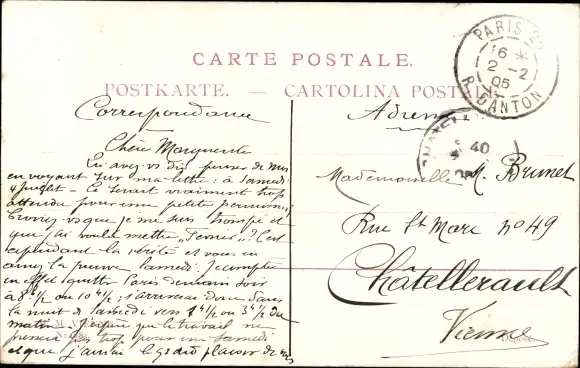 CARTE POSTALE.
POSTKARTE. — CARTOLINA POSTALE
PARIS
16 *
2 - 2
05
R. DANTON
40
Correspondance
Adresse
Chère Marguerite
Qu'avez-vs dû penser de moi
en voyant sur ma lettre : à Samedi
4 Juillet - Ce serait vraiment trop
attendre pour une petite permission ;
Croyez-vs que je me suis trompé et
que j'ai voulu mettre "Février" ? C'est
cependant la vérité et vous en
aurez la preuve Samedi. Je compte
en effet quitter Paris demain soir
à 8h 1/2 ou 10h 1/2 ; j'arriverai donc dans
la nuit de Samedi vers 1h 1/2 ou 3h 1/2 du
matin. J'espère que le travail ne
pressera pas trop pour un Samedi
et que j'aurai le grand plaisir de vs
Mademoiselle M. Brunet
Rue St Marc no 49
Châtellerault
Vienne